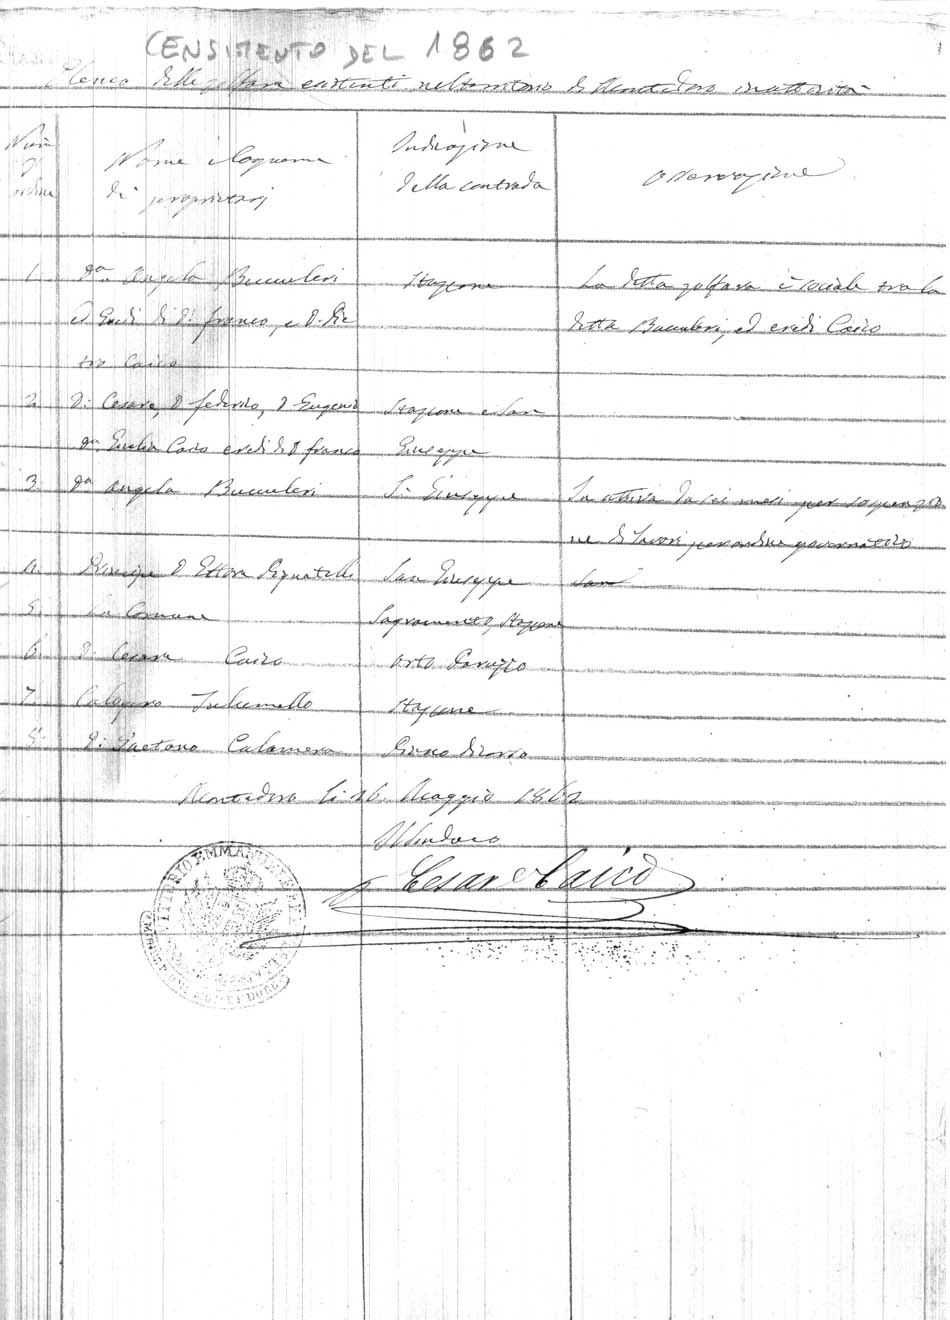 CENSIMENTO DEL 1862
Elenco delle zolfare esistenti nel territorio di Montedoro in attività
Num
d'
ordine
Nome e Cognome
di proprietarj
Indicazione
della contrada
Osservazione
1. Da. Angela Bucculeri Stazzone La detta zolfara è sociale tra la
ed Eredi di Dn. Franco, e D. Pie detta Bucculeri, ed eredi Caico
tro Caico
2. Dn. Cesare, D. Federico, D. Eugenio Stazzone e San
Da. Giulia Caico eredi di D. Franco Giuseppe
3. Da Angela Bucculeri S. Giuseppe In attiva da sei mesi per sospenzio
ne di lavori per ordine governativo
4. Principe D. Ettore Pignatelli San Giuseppe
5. La Comune Sagramento, Stazzone
6. Dn. Cesare Caico Orto
7. Calogero Stazzone
8. Dn. Gaetano Calamera Piano
Montedoro li 16 Maggio 1862
Il Sindaco
Cesare Caico
VITTORIO EMMANUELE